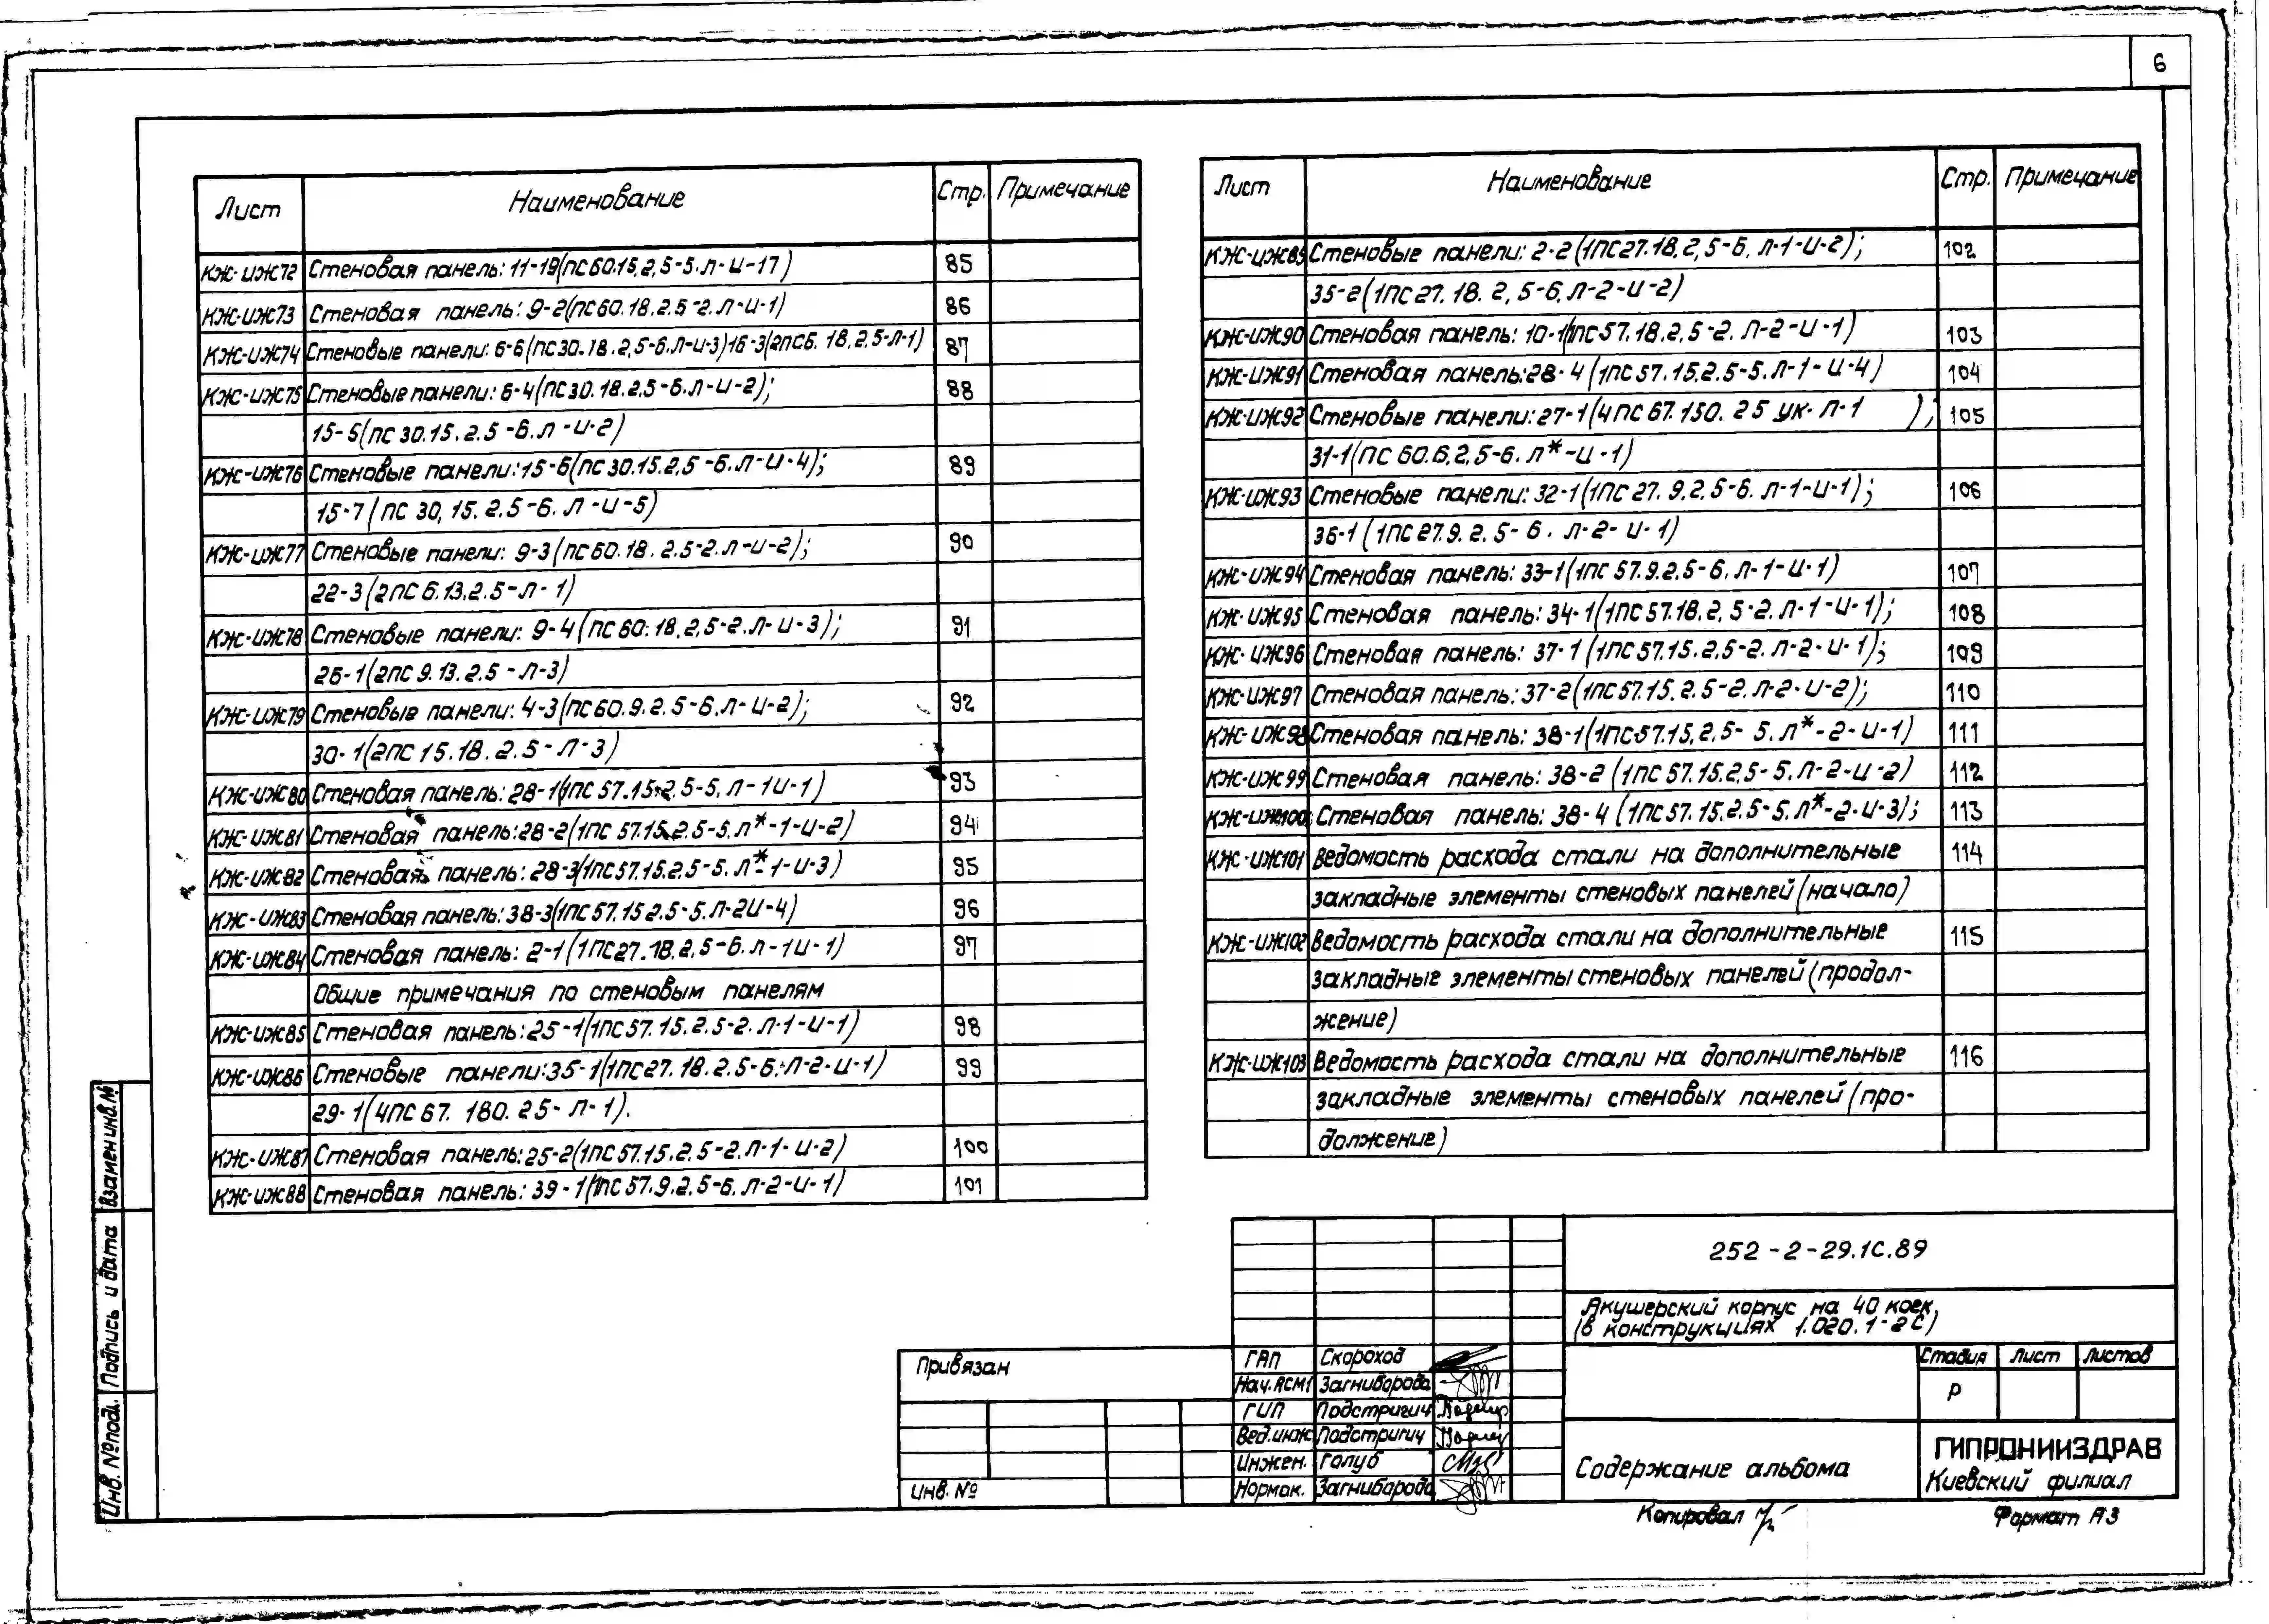 6
Лист Наименование Стр. Примечание
КЖ-ИЖ72 Стеновая панель: 11-19(ПС60.15.2,5-5.Л-И-17) 85
КЖ-ИЖ73 Стеновая панель: 9-2(ПС60.18.2.5-2.Л-И-1) 86
КЖ-ИЖ74 Стеновые панели: 6-6(ПС30.18.2,5-6.Л-И-3)16-3(2ПС6.18.2.5-Л-1) 87
КЖ-ИЖ75 Стеновые панели: 6-4(ПС30.18.2.5-6.Л-И-2); 88
15-5(ПС30.15.2.5-6.Л-И-2)
КЖ-ИЖ76 Стеновые панели: 15-6(ПС30.15.2,5-6.Л-И-4); 89
15-7(ПС 30,15.2.5-6.Л-И-5)
КЖ-ИЖ77 Стеновые панели: 9-3(ПС60.18.2.5-2.Л-И-2); 90
22-3(2ПС6.13.2.5-Л-1)
КЖ-ИЖ78 Стеновые панели: 9-4(ПС60.18.2,5-2.Л-И-3); 91
26-1(2ПС9.13.2.5-Л-3)
КЖ-ИЖ79 Стеновые панели: 4-3(ПС60.9.2.5-6.Л-И-2); 92
30-1(2ПС15.18.2.5-Л-3)
КЖ-ИЖ80 Стеновая панель: 28-1(1ПС57.15.2.5-5.Л-1И-1) 93
КЖ-ИЖ81 Стеновая панель: 28-2(1ПС57.15.2.5-5.Л*-1-И-2) 94
КЖ-ИЖ82 Стеновая панель: 28-3(1ПС57.15.2.5-5.Л*-1-И-3) 95
КЖ-ИЖ83 Стеновая панель: 38-3(1ПС57.15 2.5-5.Л-2И-4) 96
КЖ-ИЖ84 Стеновая панель: 2-1(1ПС27.18.2,5-6.Л-1И-1) 97
Общие примечания по стеновым панелям
КЖ-ИЖ85 Стеновая панель: 25-1(1ПС57.15.2.5-2.Л-1-И-1) 98
КЖ-ИЖ86 Стеновые панели: 35-1(1ПС27.18.2.5-6.Л-2-И-1) 99
29-1(4ПС67.180.25-Л-1).
КЖ-ИЖ87 Стеновая панель: 25-2(1ПС57.15.2.5-2.Л-1-И-2) 100
КЖ-ИЖ88 Стеновая панель: 39-1(1ПС57.9.2.5-6.Л-2-И-1) 101
Лист Наименование Стр. Примечание
КЖ-ИЖ89 Стеновые панели: 2-2(1ПС27.18.2,5-6.Л-1-И-2); 102
35-2(1ПС27.18.2,5-6.Л-2-И-2)
КЖ-ИЖ90 Стеновая панель: 10-1(1ПС57.18.2.5-2.Л-2-И-1) 103
КЖ-ИЖ91 Стеновая панель: 28-4(1ПС57.15.2.5-5.Л-1-И-4) 104
КЖ-ИЖ92 Стеновые панели: 27-1(4ПС67.150.25 УК-Л-1 ); 105
31-1(ПС60.6.2,5-6.Л*-И-1)
КЖ-ИЖ93 Стеновые панели: 32-1(1ПС27.9.2.5-6.Л-1-И-1); 106
36-1(1ПС27.9.2.5-6.Л-2-И-1)
КЖ-ИЖ94 Стеновая панель: 33-1(1ПС57.9.2.5-6.Л-1-И-1) 107
КЖ-ИЖ95 Стеновая панель: 34-1(1ПС57.18.2,5-2.Л-1-И-1); 108
КЖ-ИЖ96 Стеновая панель: 37-1(1ПС57.15.2.5-2.Л-2-И-1); 109
КЖ-ИЖ97 Стеновая панель: 37-2(1ПС57.15.2.5-2.Л-2-И-2); 110
КЖ-ИЖ98 Стеновая панель: 38-1(1ПС57.15.2,5-5.Л*-2-И-1) 111
КЖ-ИЖ99 Стеновая панель: 38-2(1ПС57.15.2.5-5.Л-2-И-2) 112
КЖ-ИЖ100 Стеновая панель: 38-4(1ПС57.15.2.5-5.Л*-2-И-3); 113
КЖ-ИЖ101 Ведомость расхода стали на дополнительные 114
закладные элементы стеновых панелей(начало)
КЖ-ИЖ102 Ведомость расхода стали на дополнительные 115
закладные элементы стеновых панелей(продол-
жение)
КЖ-ИЖ103 Ведомость расхода стали на дополнительные 116
закладные элементы стеновых панелей(про-
должение)
252-2-29.1С.89
Акушерский корпус на 40 коек,
(в конструкциях 1.020.1-2С)
Привязан
Инв. №
ГАП Скороход
Нач.АСМ1 Загниборода
ГИП Подстригич
Вед.инж Подстригич
Инжен. Голуб
Нормок. Загниборода
Стадия Лист Листов
Р
Содержание альбома
ГИПРОНИИЗДРАВ
Киевский филиал
Копировал
Формат А3
Взамен инв.№
Подпись и дата
Инв. №подл.